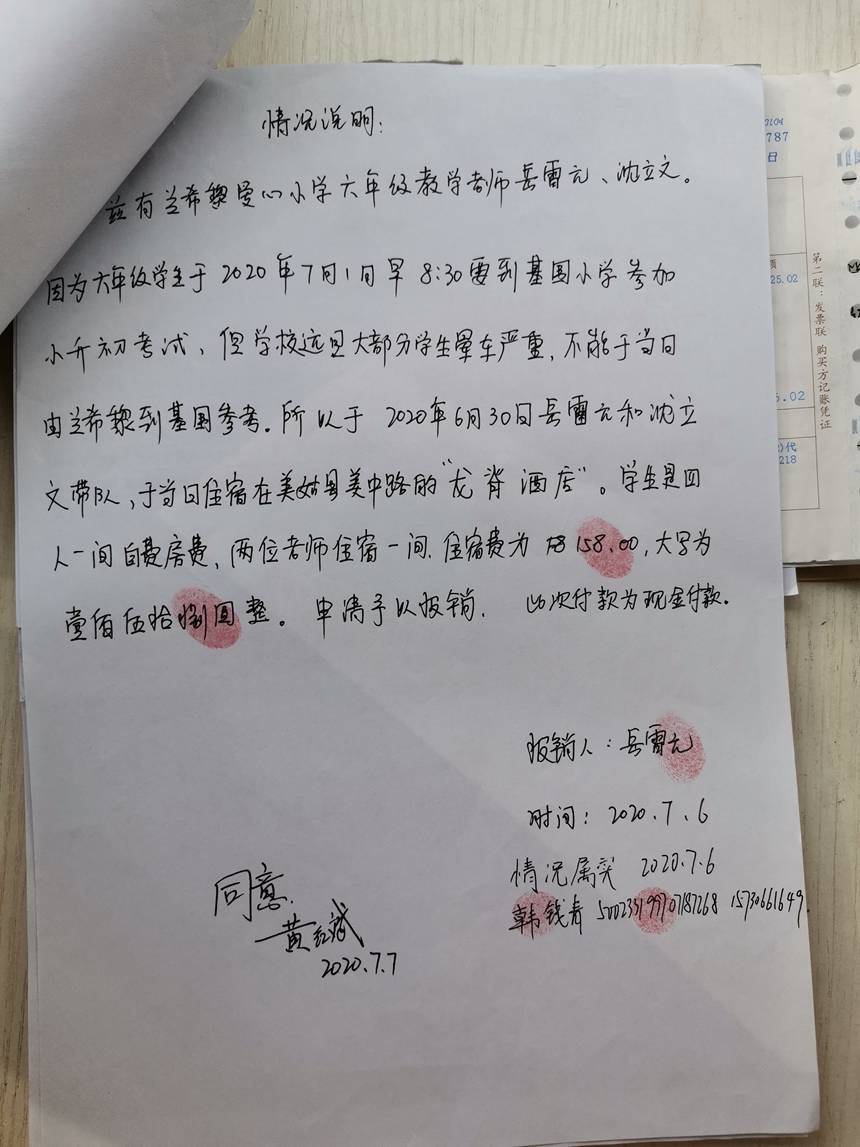 情况说明:
兹有兰希黎爱心小学六年级教学老师岳雷元、沈立文。
因为六年级学生于2020年7月1日早8:30要到基国小学参加
小升初考试、但学校远且大部分学生晕车严重,不能于当日
由兰希黎到基国参考。所以于2020年6月30日岳雷元和沈立
文带队,于当日住宿在美姑县美中路的“龙脊酒店”。学生是四
人一间自费房费,两位老师住宿一间.住宿费为 158.00,大写为
壹佰伍拾捌圆整。申请予以报销.此次付款为现金付款。
报销人:岳雷元
时间:2020.7.6
情况属实 2020.7.6
韩钱青 500233199707187268 15730661649.
同意.
黄红斌
2020.7.7
787
日
25.02
.02
代
218
第二联:发票联 购买方记账凭证